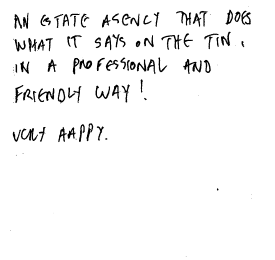 AN ESTATE AGENCY THAT DOES
WHAT IT SAYS ON THE TIN,
IN A PROFESSIONAL AND
FRIENDLY WAY!
VERY HAPPY.